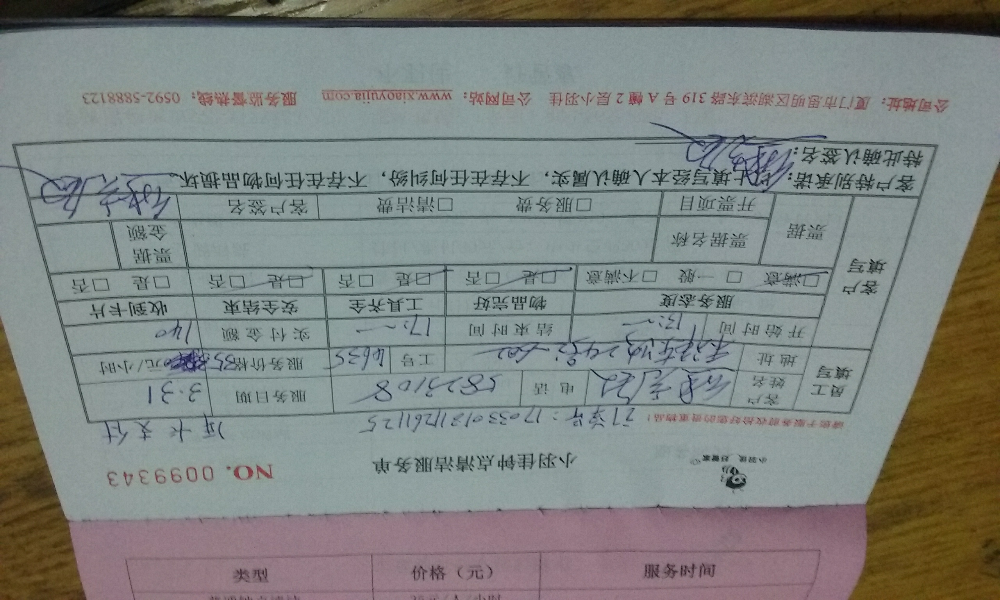 小羽佳 好管家
小羽佳钟点清洁服务单
NO. 0099343
请您于服务前收检好您的贵重物品!
订单号：1703301217261125
员工填写
客户姓名
电话 5823108
服务日期 3.31
地址
工号 4635
服务价格 35 元/小时
开始时间 13:~
结束时间 17:~
实付金额 140
客户填写
服务态度 物品完好 工具齐全 安全结束 收到卡片
☑满意 □一般 □不满意 ☑是 □否 ☑是 □否 ☑是 □否 □是 □否
票据
票据名称
票据金额
开票项目 □服务费 □清洁费 客户签名
客户特别承诺：以上填写经本人确认属实，不存在任何纠纷，不存在任何物品损坏。
特此确认签名：
公司地址：厦门市思明区湖滨东路 319 号 A 幢 2 层小羽佳 公司网站：www.xiaoyujia.com 服务监督热线：0592-5888123
类型 价格（元） 服务时间